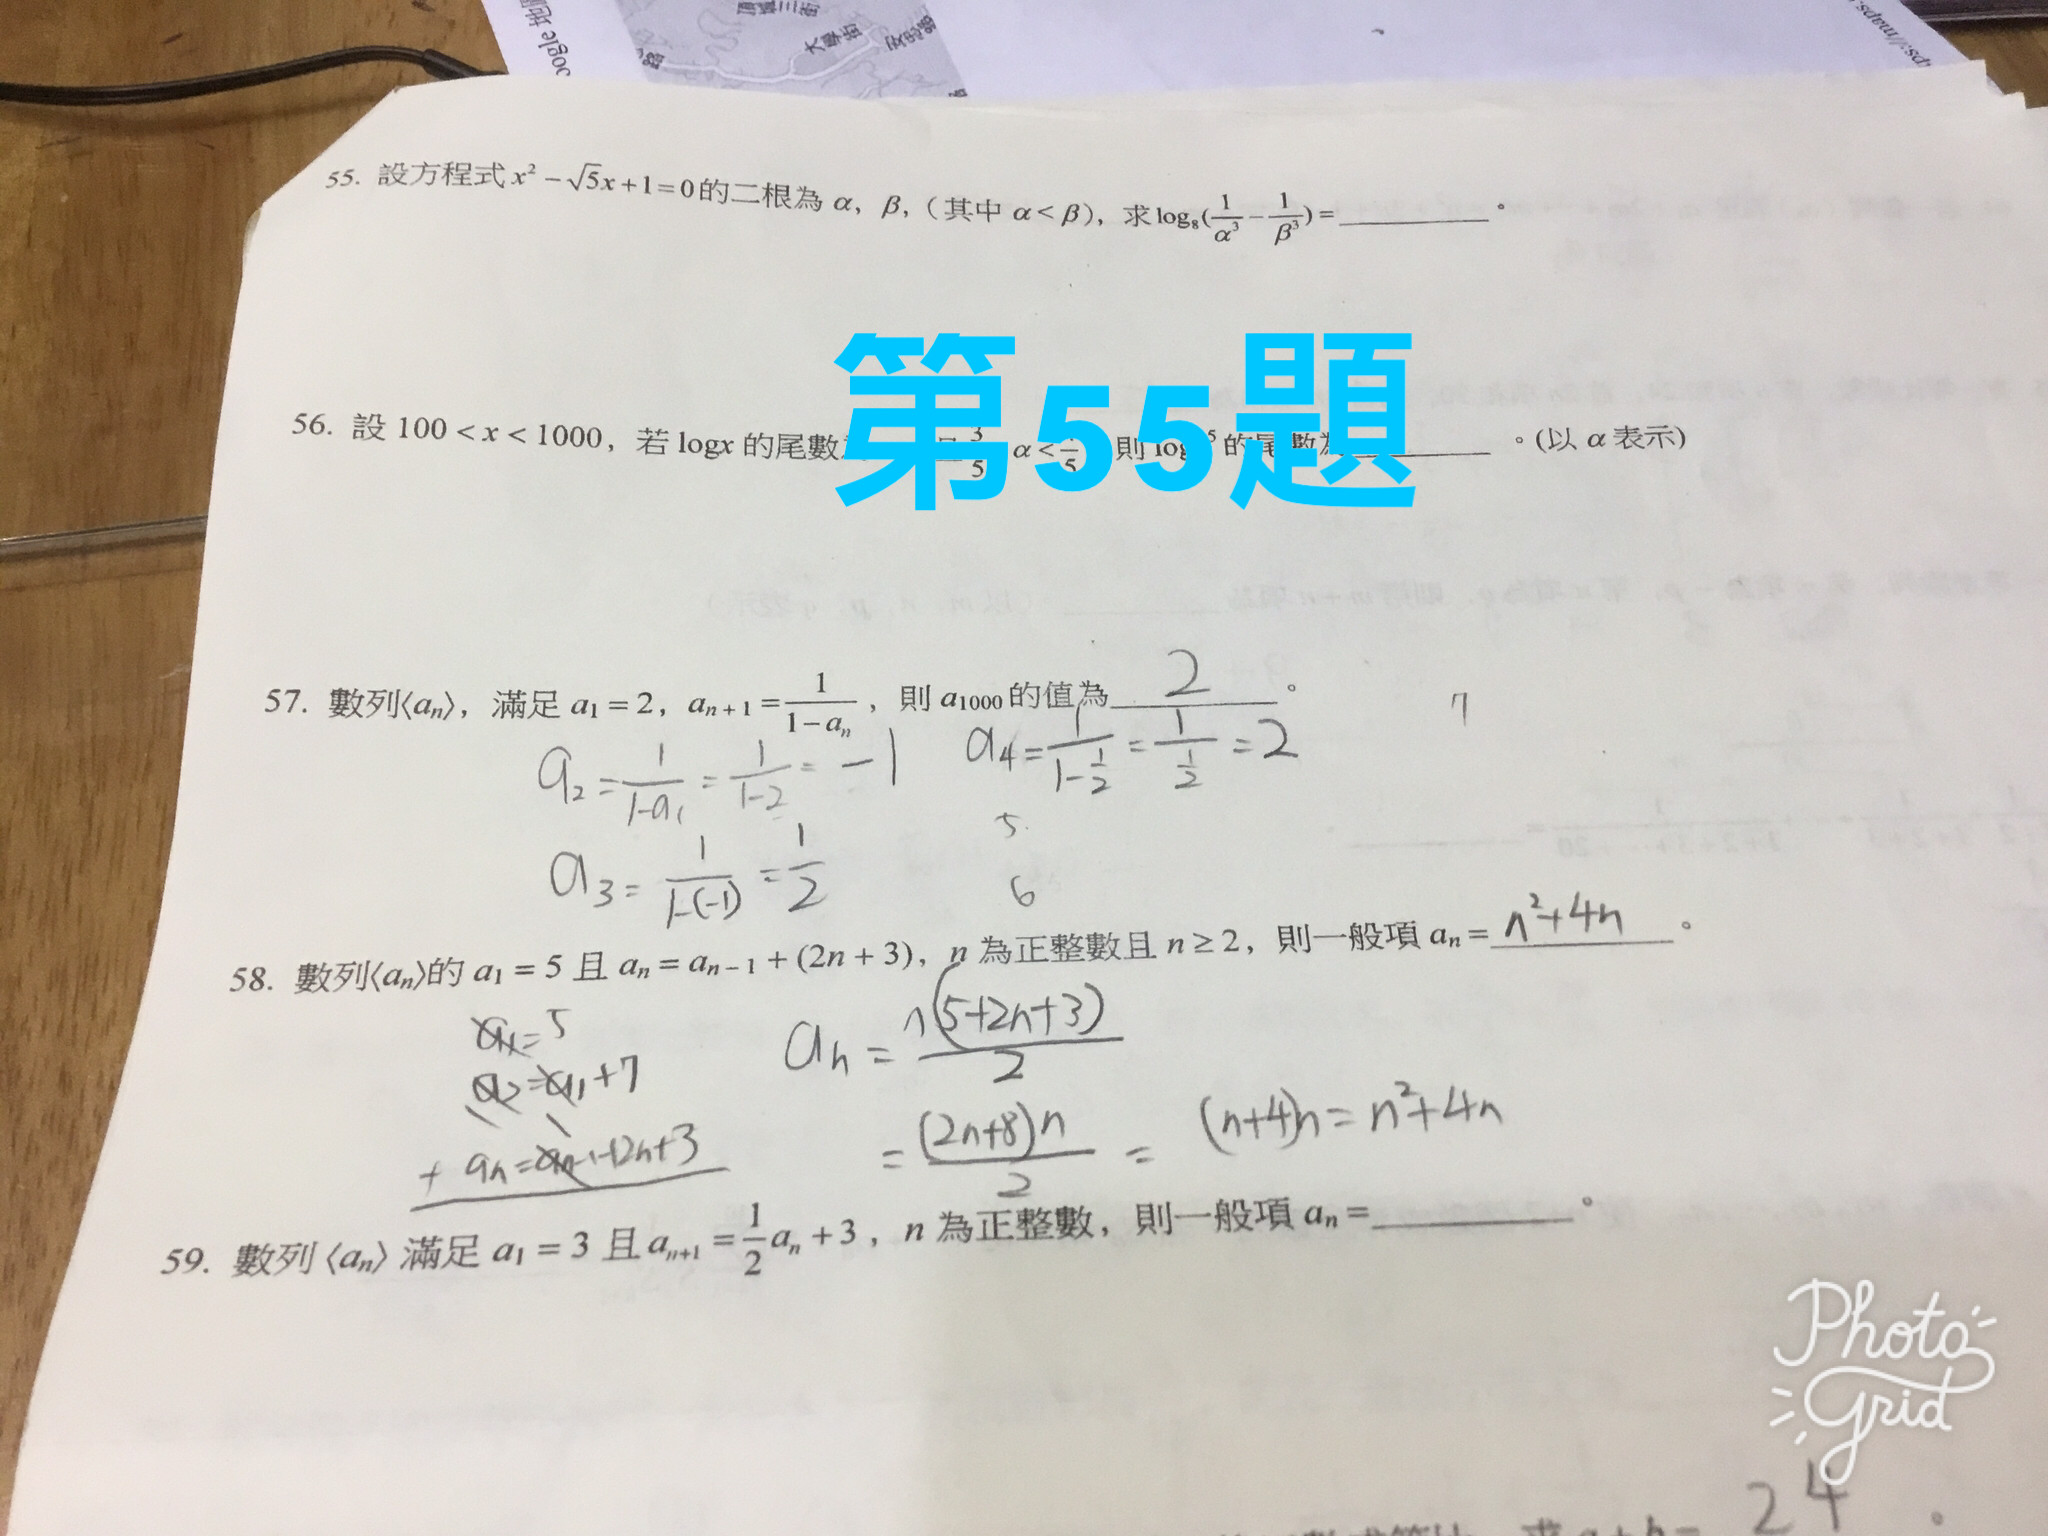 oogle 地
頂 三街
大學街
安忠路
路
ps://maps.
55. 設方程式 x² − √5x + 1 = 0 的二根為 α, β, (其中 α < β), 求 log₈(1/α³ − 1/β³) = ________。
第55題
56. 設 100 < x < 1000, 若 logx 的尾數 3/5 α < /5 則 log 5 的尾數為________。(以 α 表示)
57. 數列⟨aₙ⟩, 滿足 a₁ = 2, aₙ₊₁ = 1/(1−aₙ), 則 a₁₀₀₀ 的值為 2 。
7
a₂ = 1/(1−a₁) = 1/(1−2) = −1
a₄ = 1/(1−1/2) = 1/(1/2) = 2
a₃ = 1/(1−(−1)) = 1/2
5
6
58. 數列⟨aₙ⟩的 a₁ = 5 且 aₙ = aₙ₋₁ + (2n + 3), n 為正整數且 n ≥ 2, 則一般項 aₙ = n²+4n 。
a₁ = 5
a₂ = a₁ + 7
+ aₙ = aₙ₋₁ + 2n+3
aₙ = n(5+2n+3)/2
= (2n+8)n/2 = (n+4)n = n²+4n
59. 數列 ⟨aₙ⟩ 滿足 a₁ = 3 且 aₙ₊₁ = 1/2 aₙ + 3, n 為正整數, 則一般項 aₙ = ________。
求 a + b = 24 。
Photo
Grid